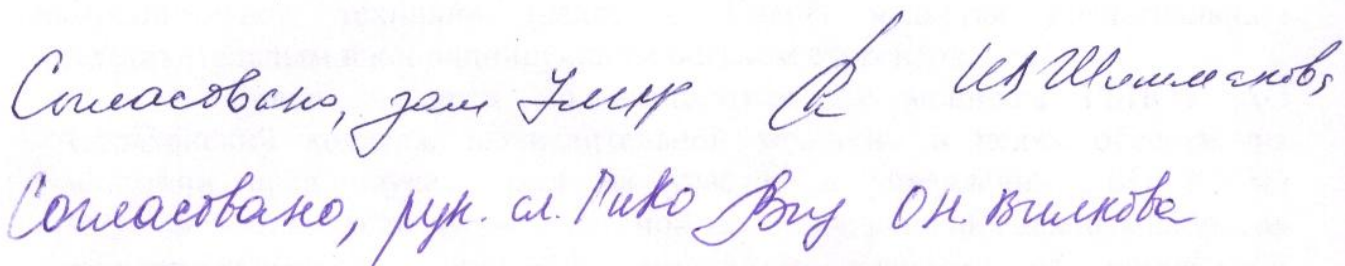 Согласовано, зам УМНР И.А. Шиманова
Согласовано, рук. сл. ПиКО О.Н. Вилкова